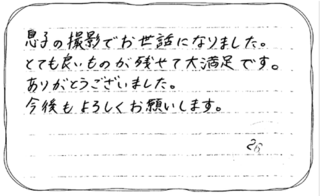 息子の撮影でお世話になりました。
とても良いものが残せて大満足です。
ありがとうございました。
今後もよろしくお願いします。